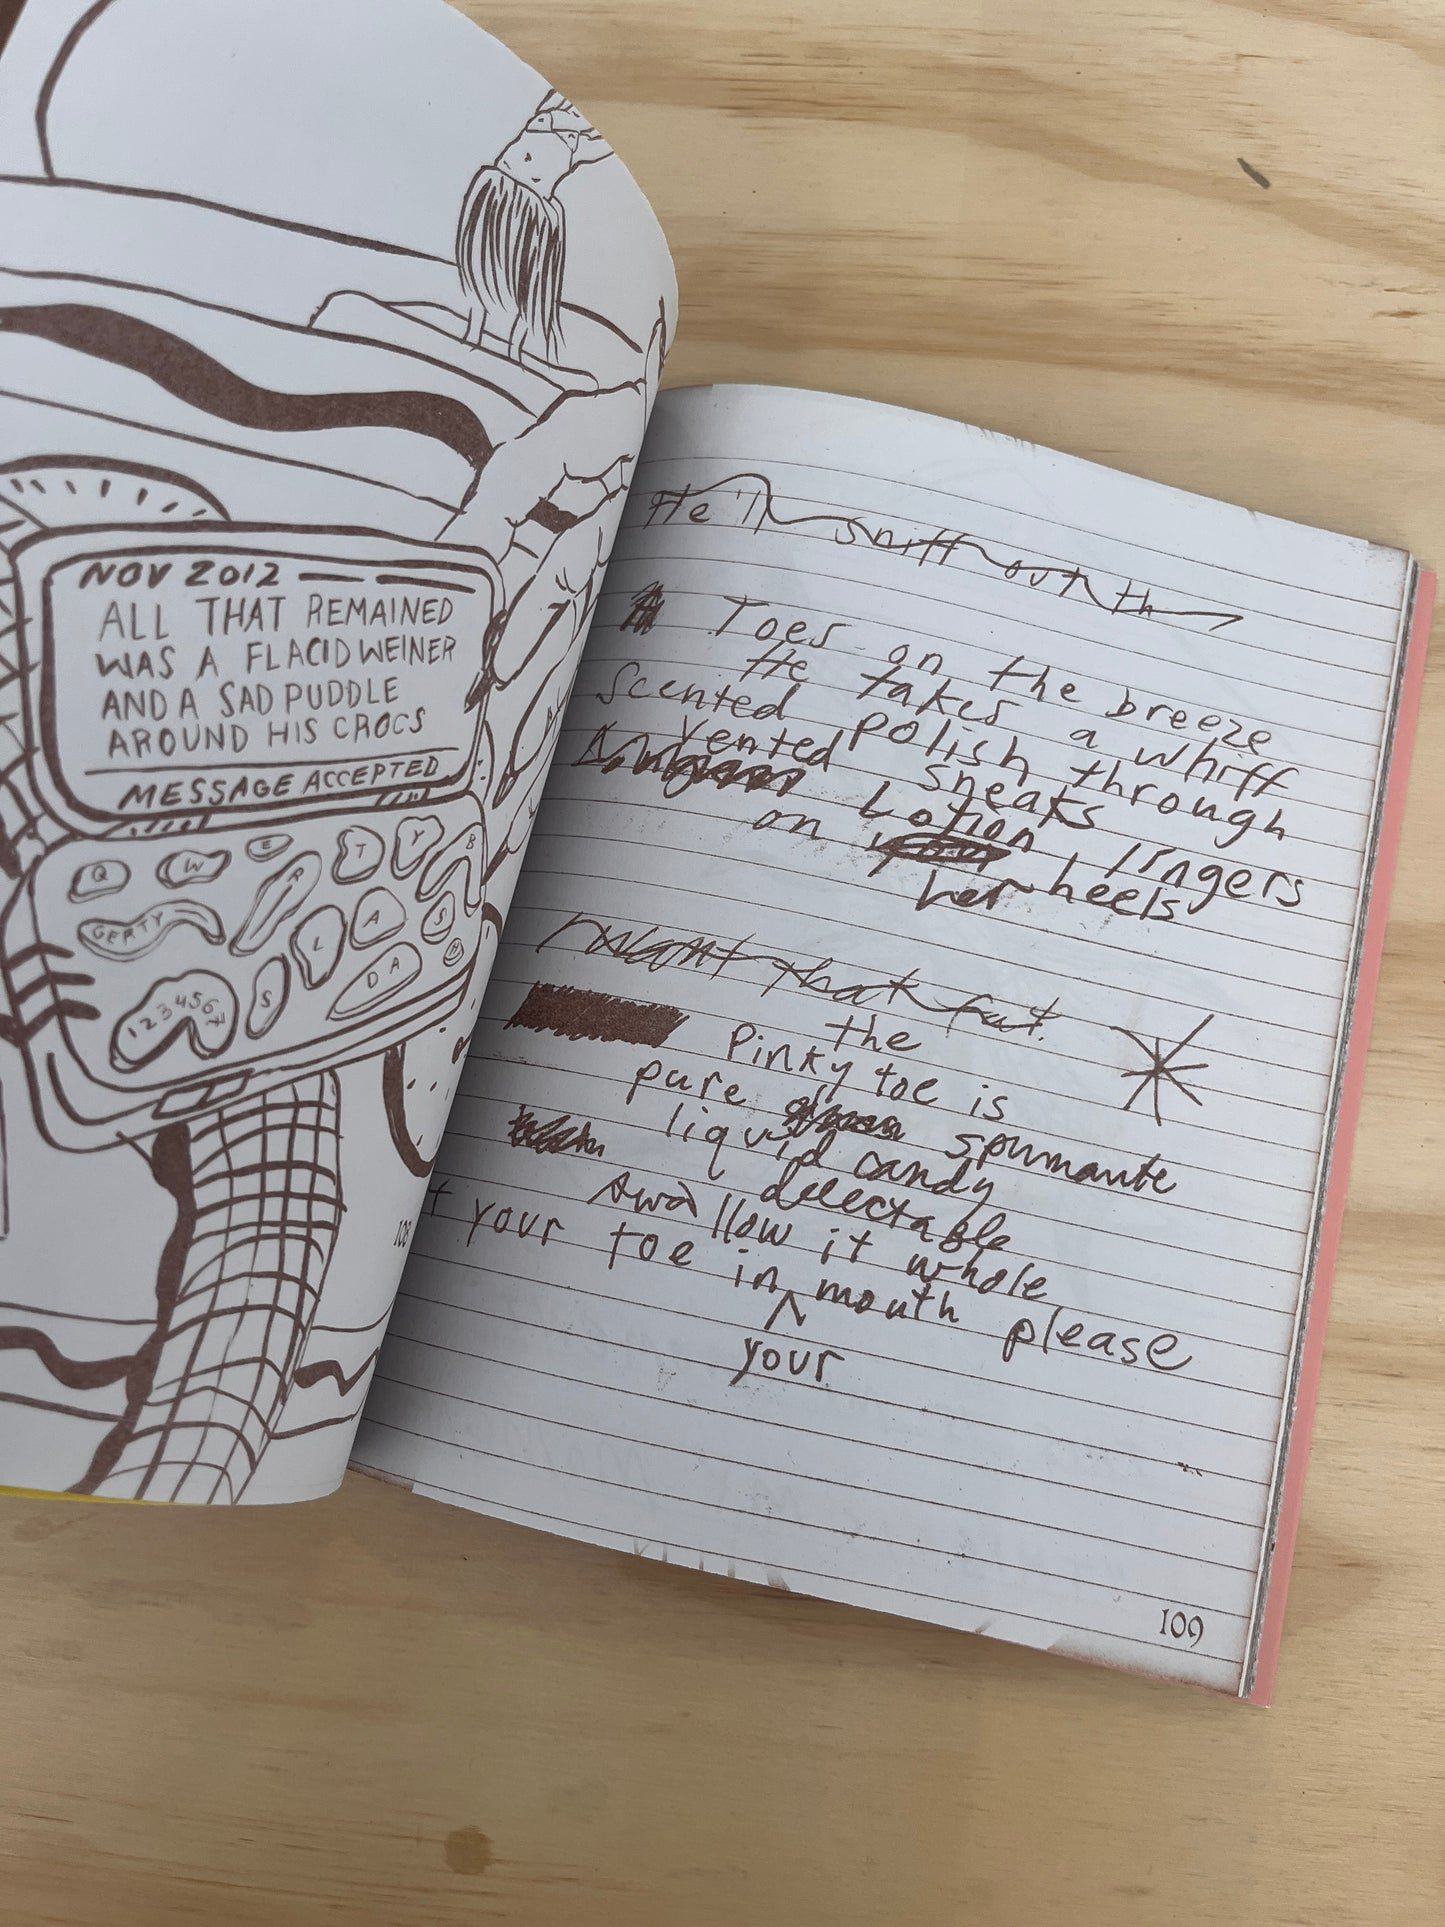 NOV 2012
ALL THAT REMAINED
WAS A FLACID WEINER
AND A SAD PUDDLE
AROUND HIS CROCS
MESSAGE ACCEPTED
Q W E R T Y B
GERTY L A S
1234567 S DA
108
He'll sniff out th
Toes on the breeze
He takes a whiff
Scented polish through
vented sneaks
Lotion lingers
on her heels
I want that fut
the
pinky toe is
pure spumante
liquid candy
delectable
swallow it whole
t your toe in mouth please
your
109